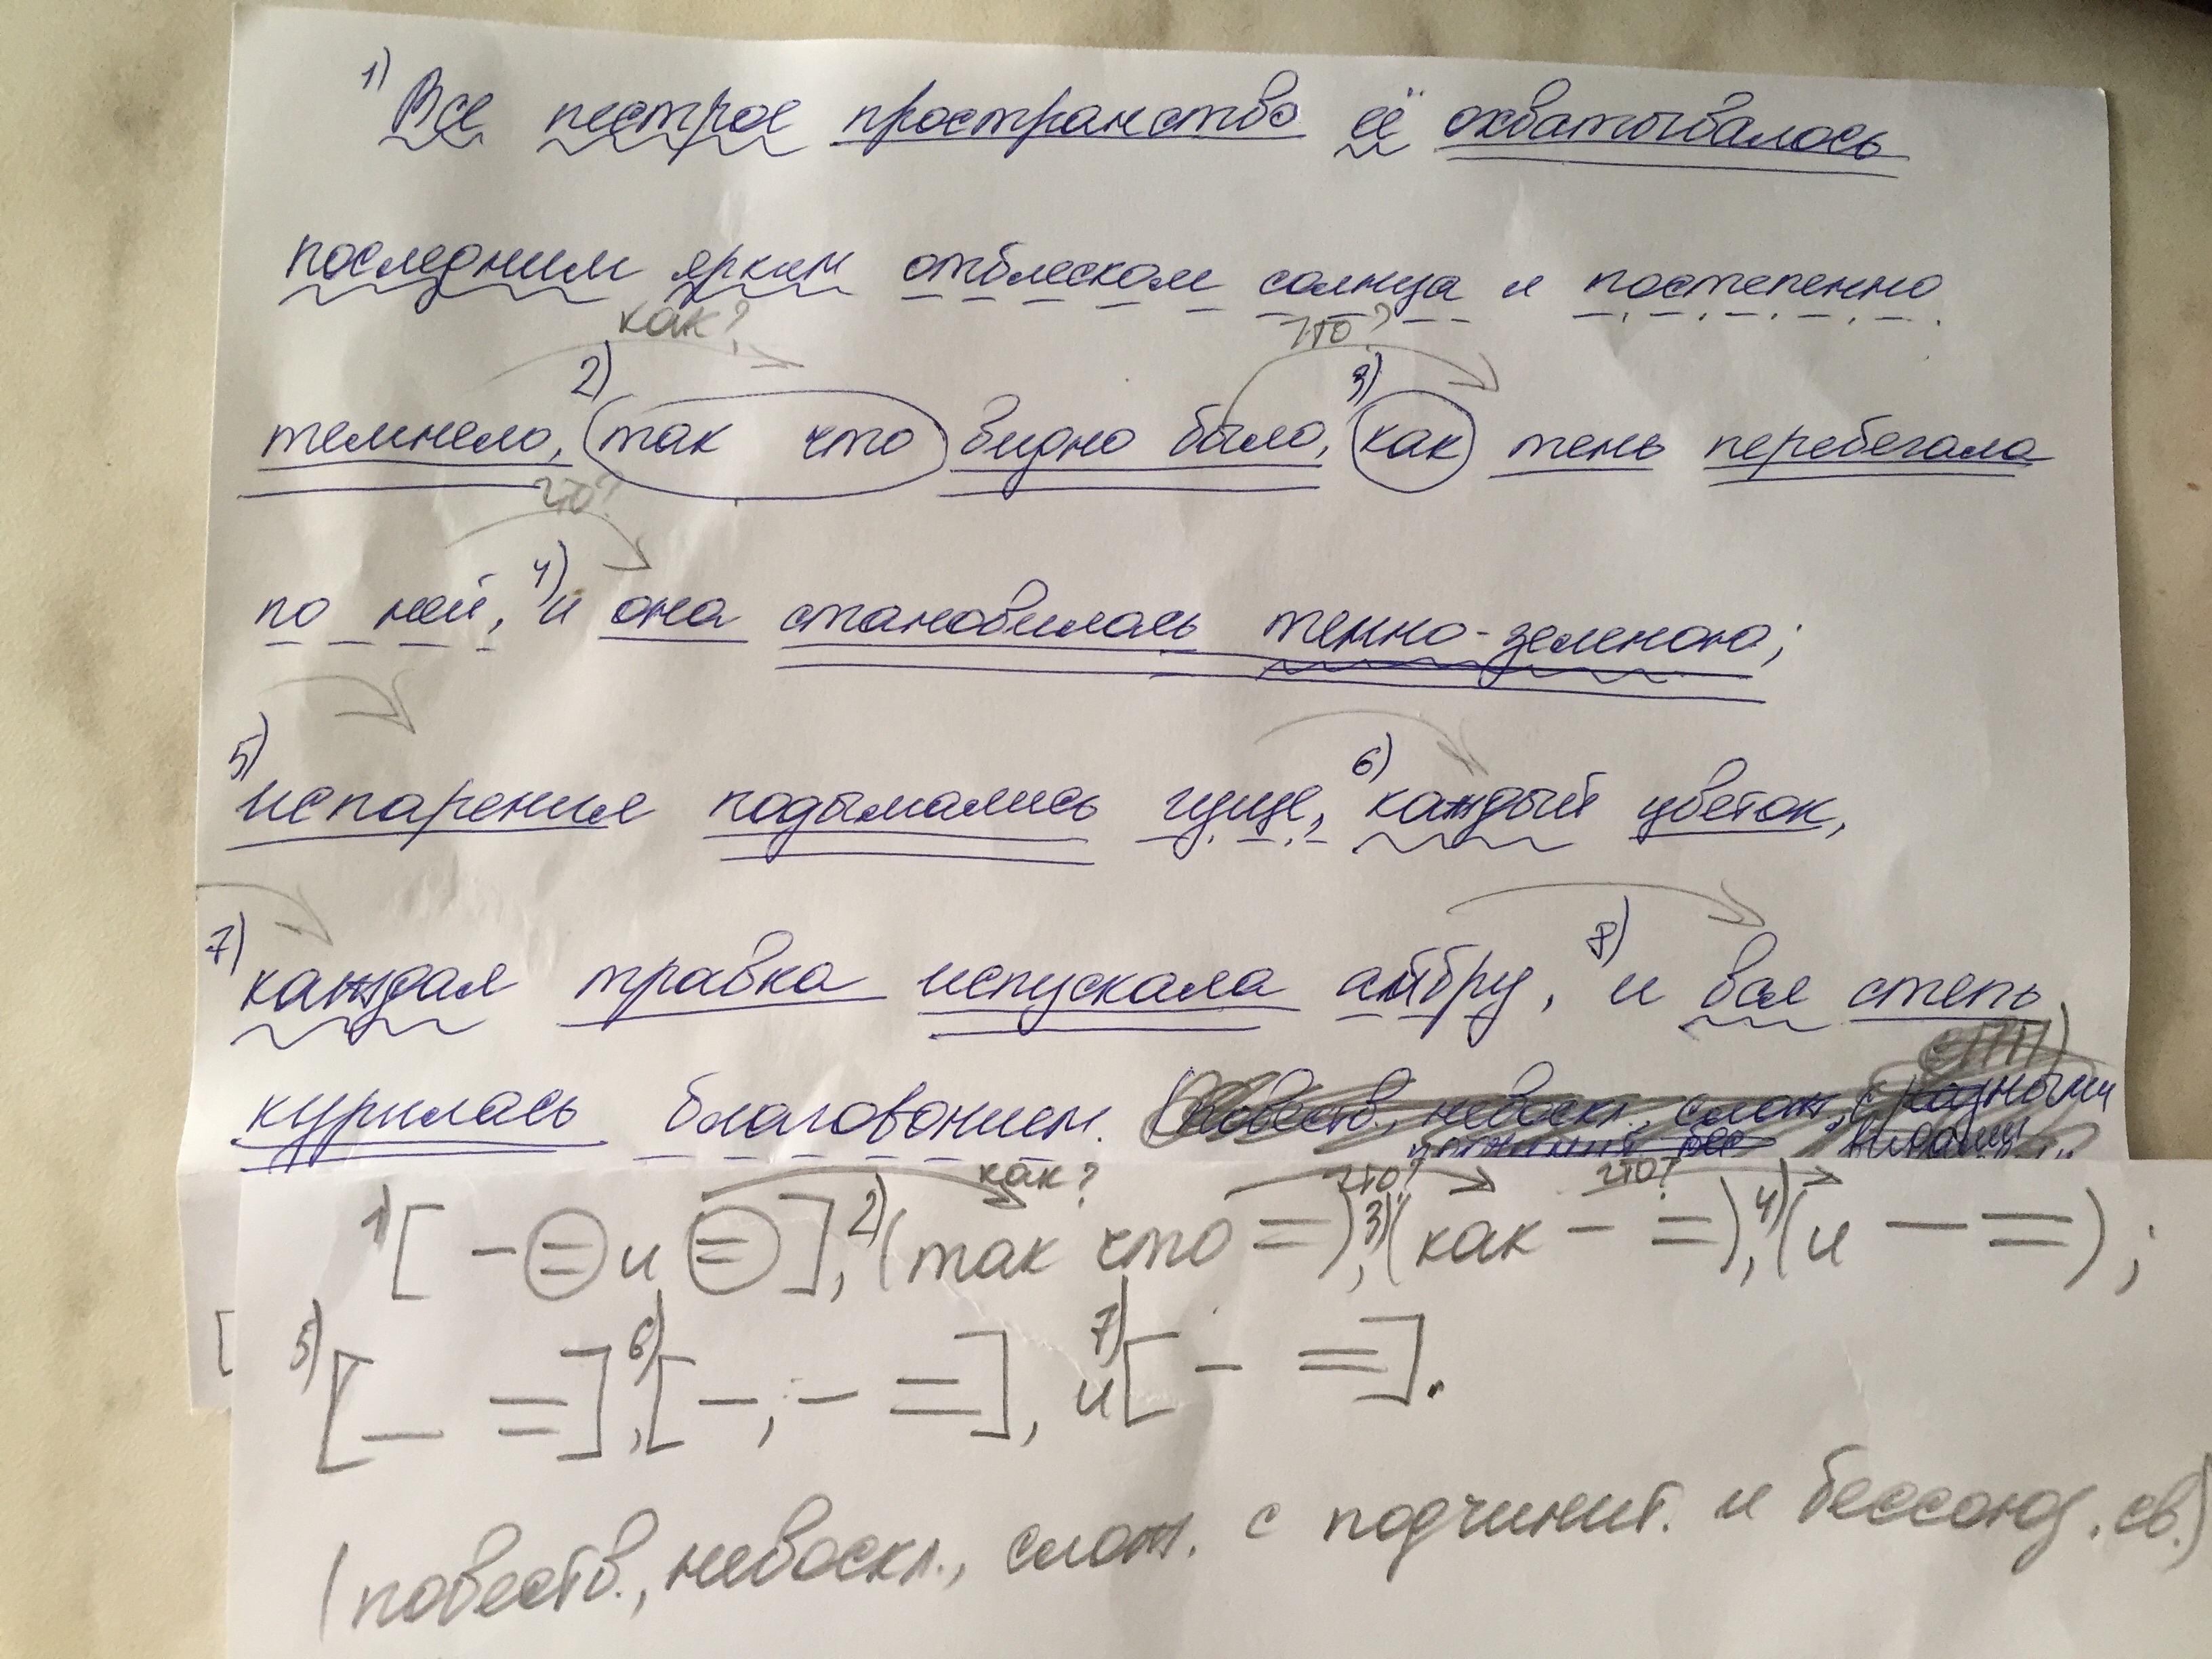 1) Все пестрое пространство её охватывалось
последним ярким отблеском солнца и постепенно
как? что?
темнело, 2) так что видно было, 3) как тень перебегала
что?
по ней, 4) и она становилась темно-зеленою;
5) испарения подымались гуще, 6) каждый цветок,
7) каждая травка испускала амбру, 8) и вся степь
курилась благовонием. (повеств., невоскл., слож., с разными
видами
как? что? что?
1) [ - = и = ], 2) (так что = ), 3) (как - = ), 4) (и - = );
5) [ - = ], 6) [ - , - = ], и 7) [ - = ].
(повеств., невоскл., слож. с подчинит. и бессоюз. св.)